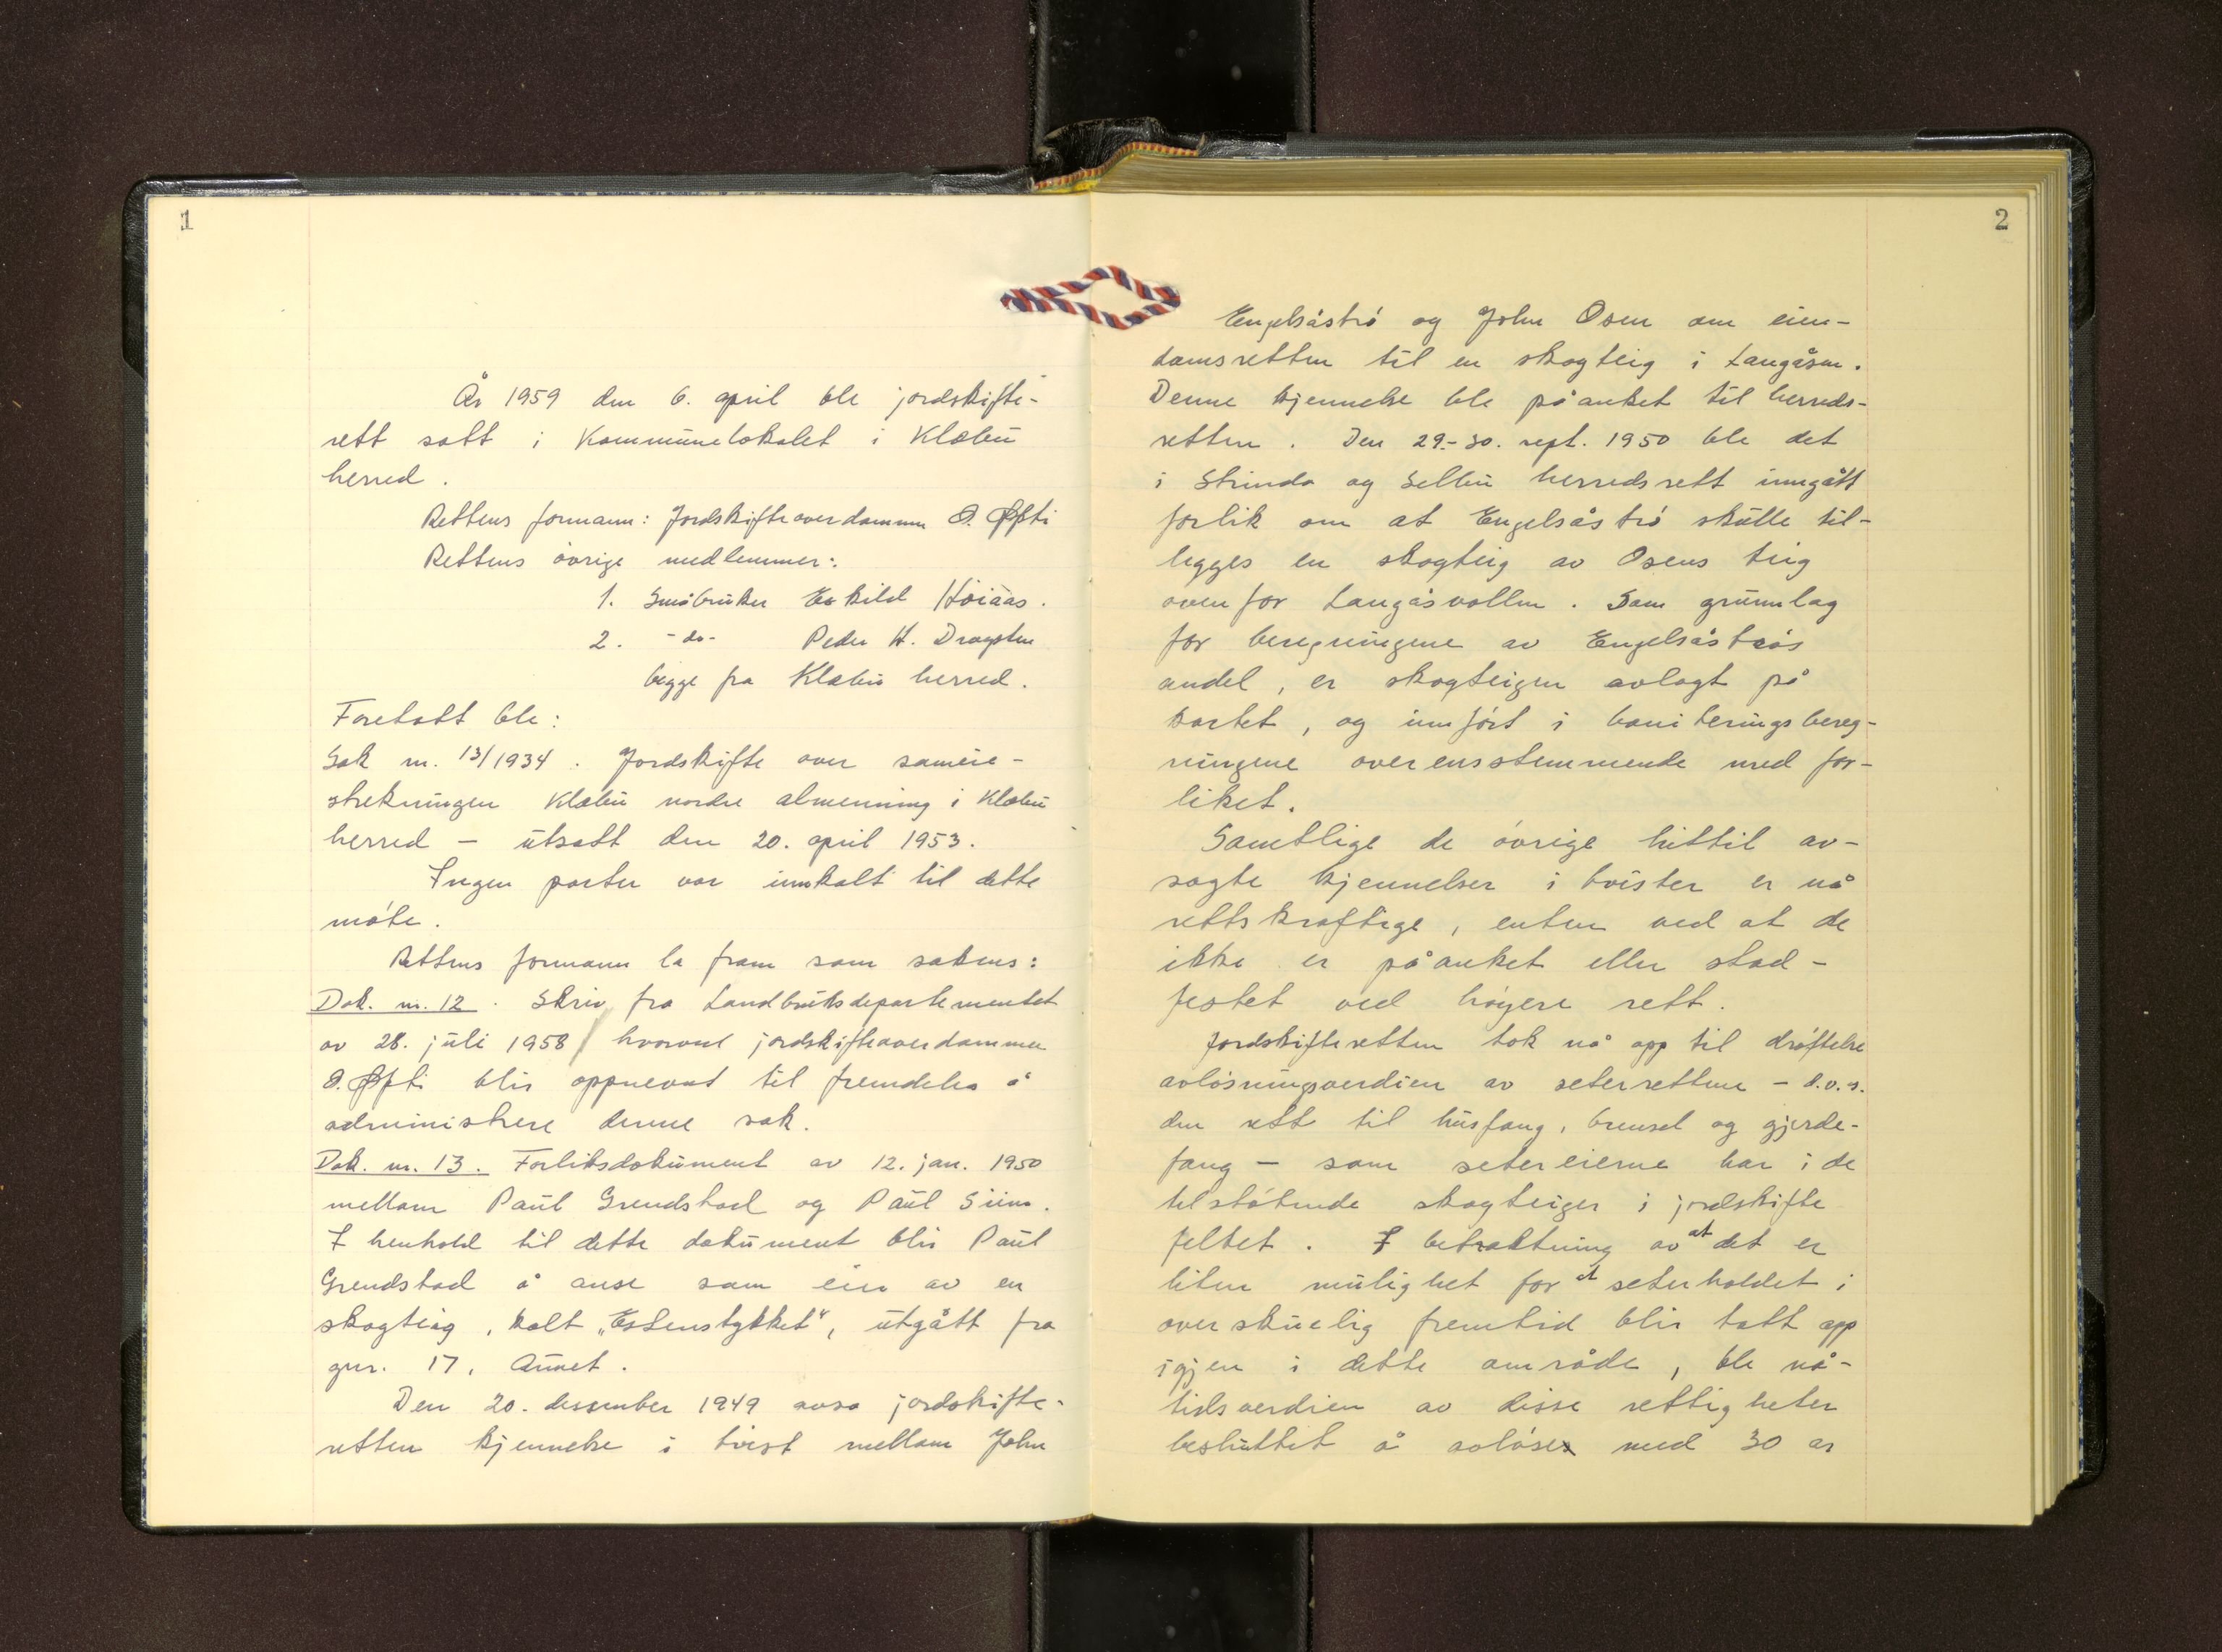 1
År 1959 den 6. april ble jordskifte-
rett satt i Kommunelokalet i Klæbu
herred.
Rettens formann: Jordskifteoverdommer O. Øfsti
Rettens övrige medlemmer:
1. Småbruker Eskild Höiås.
2. -do- Peder H. Dragsten
begge fra Klæbu herred.
Foretatt ble:
Sak nr. 13/1934. Jordskifte over sameie-
strekningen Klæbu nordre almenning i Klæbu
herred - utsatt den 20. april 1953.
Ingen parter var innkalt til dette
möte.
Rettens formann la fram som sakens:
Dok. nr. 12. Skriv fra Landbruksdepartementet
av 28. juli 1958 hvorved jordskifteoverdommer
O. Øfsti blir oppnevnt til fremdeles å
administrere denne sak.
Dok. nr. 13. Forliksdokument av 12. jan. 1950
mellom Paul Grendstad og Paul Siem.
I henhold til dette dokument blir Paul
Grendstad å anse som eier av en
skogteig, kalt „Estenstykket", utgått fra
gnr. 17, Aunet.
Den 20. desember 1949 avsa jordskifte-
retten kjennelse i tvist mellom John
2
Engelsåströ og John Osen om eien-
domsretten til en skogteig i Langåsen.
Denne kjennelse ble påanket til herreds-
retten. Den 29.-30. sept. 1950 ble det
i Strinda og Selbu herredsrett inngått
forlik om at Engelsåströ skulle til-
legges en skogteig av Osens teig
ovenfor Langåsvollen. Som grunnlag
for beregningene av Engelsåströs
andel, er skogteigen avlagt på
kartet, og innfört i boniteringsbereg-
ningene overensstemmende med for-
liket.
Samtlige de övrige hittil av-
sagte kjennelser i tvister er nå
rettskraftige, enten ved at de
ikke er påanket eller stad-
festet ved höyere rett.
Jordskifteretten tok nå opp til dröftelse
avlösningsverdien av seterrettene - d.v.s.
den rett til husfang, brensel og gjerde-
fang - som setereierne har i de
tilstötende skogteiger i jordskifte
feltet. I betraktning av at det er
liten mulighet for at seterholdet i
overskuelig fremtid blir tatt opp
igjen i dette område, ble nå-
tidsverdien av disse rettigheter
besluttet å avlöse med 30 ar